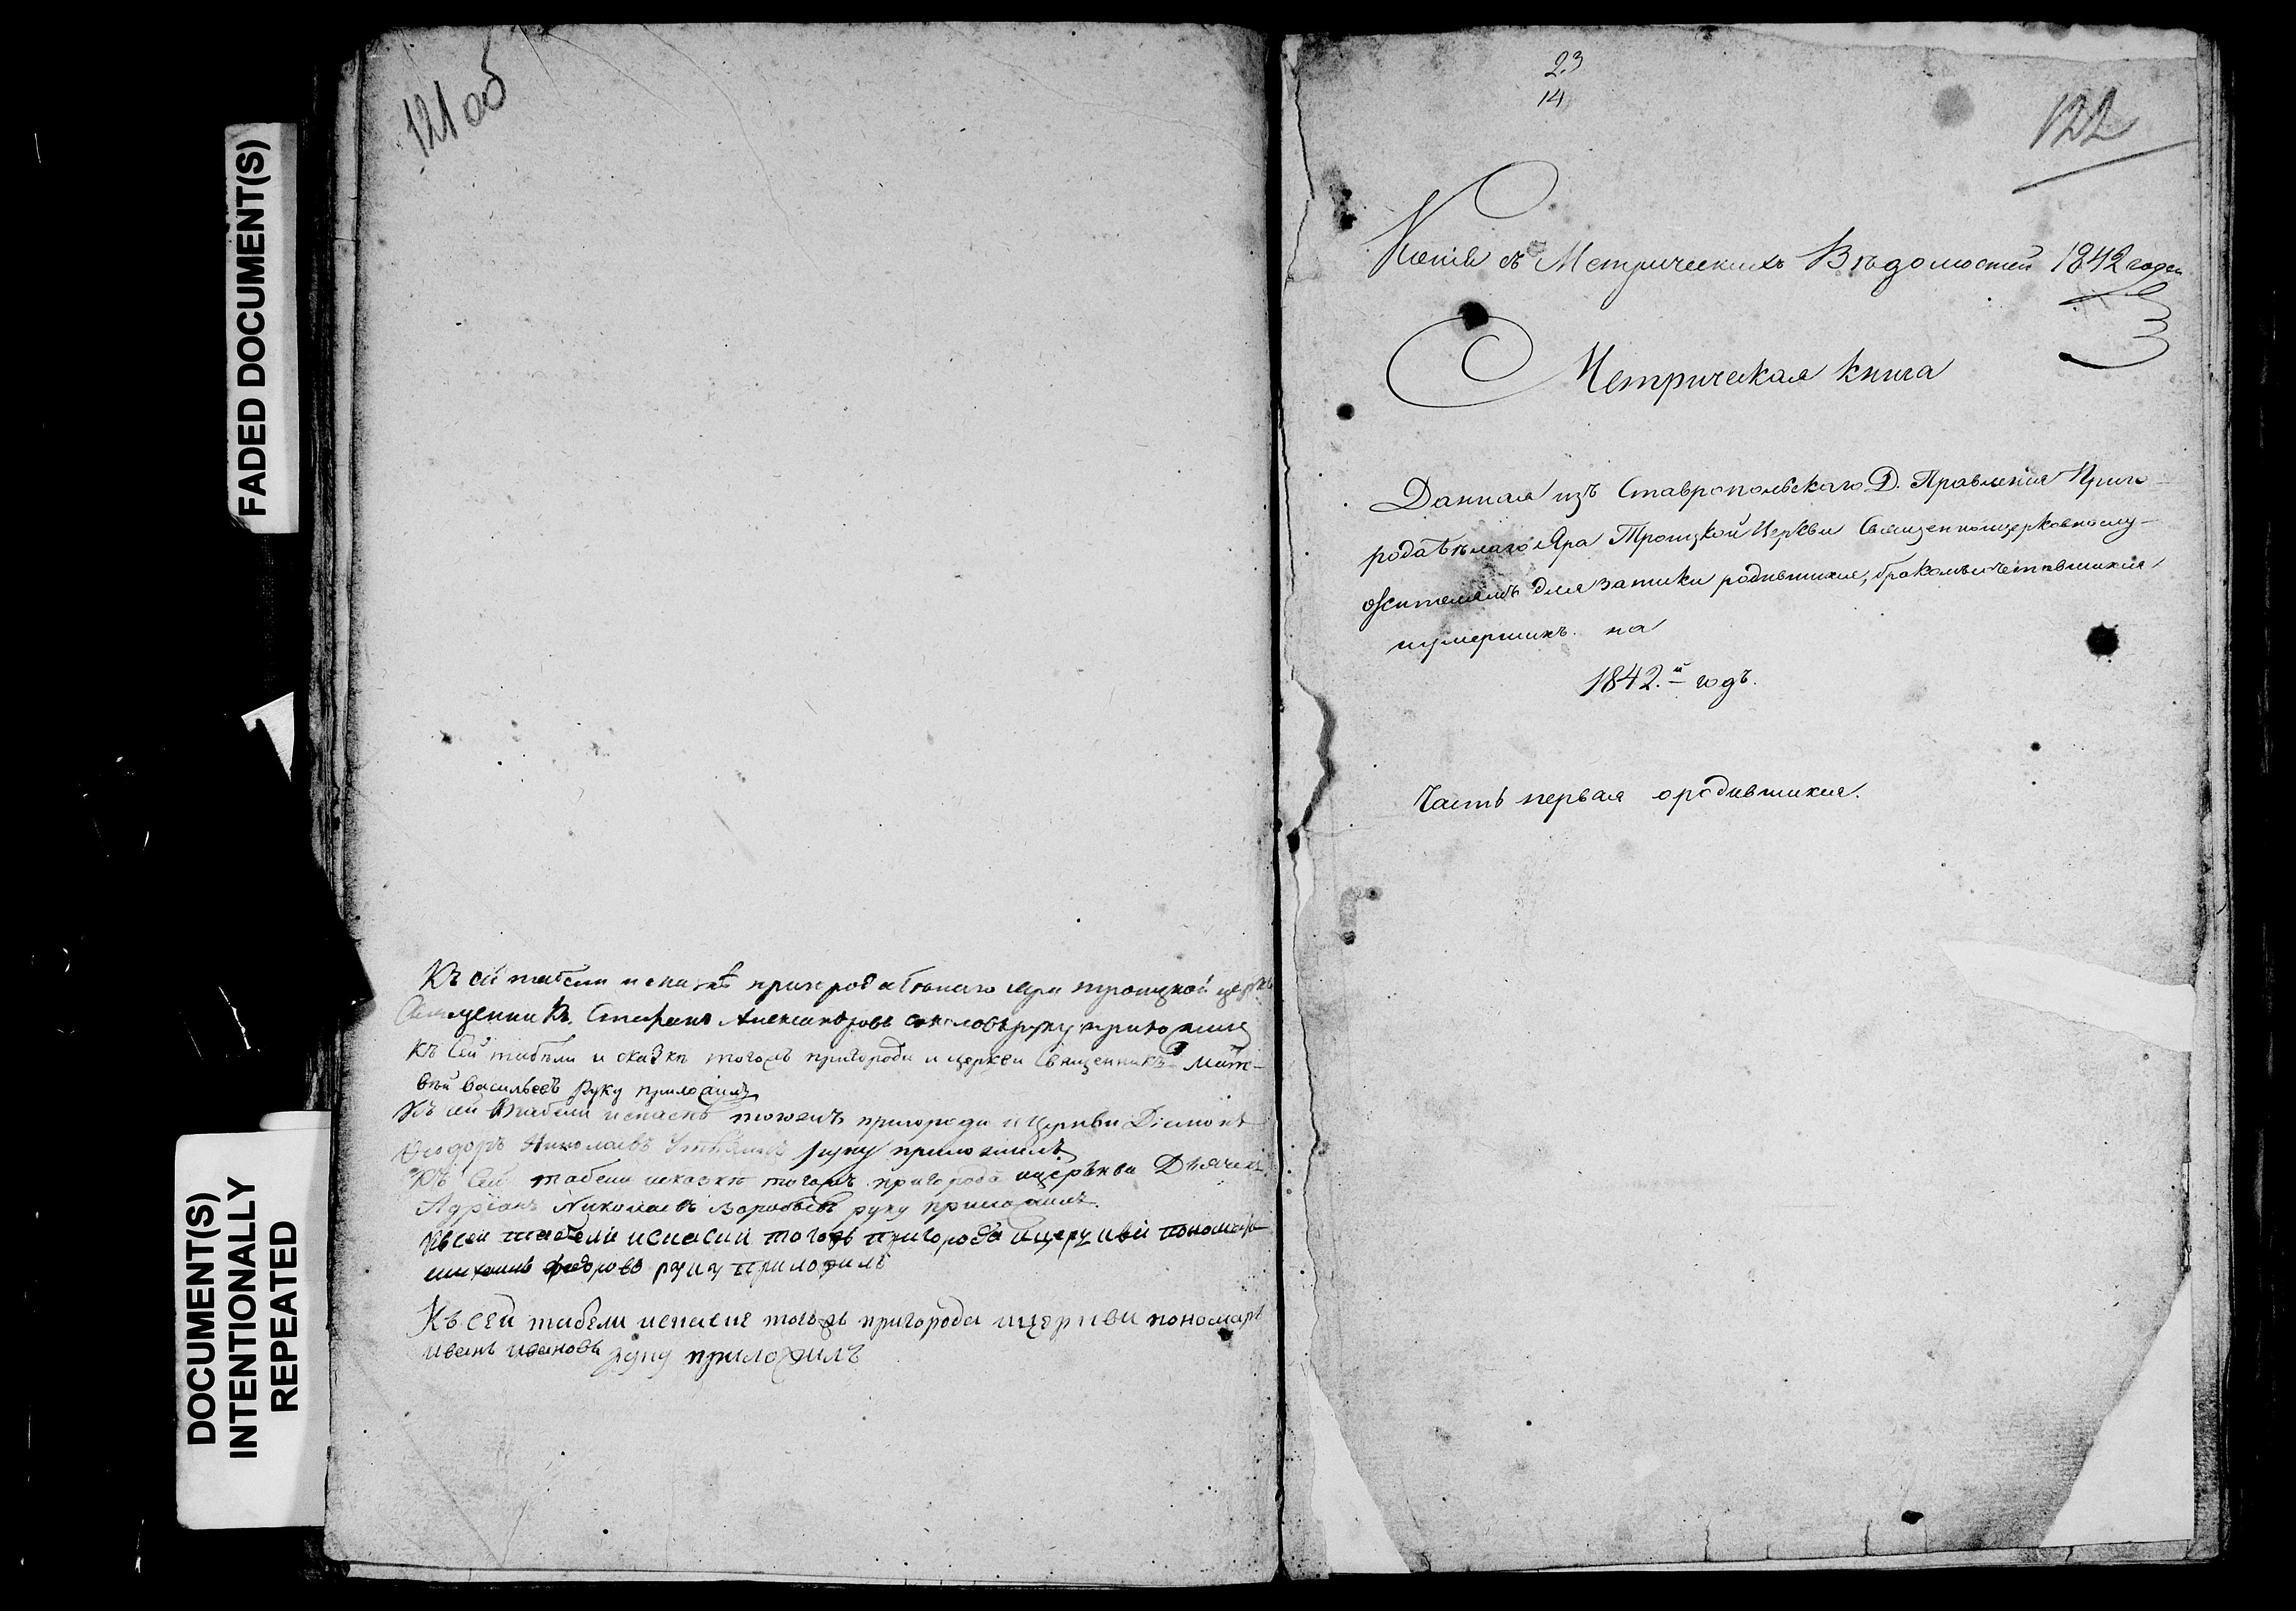 FADED DOCUMENT(S)
DOCUMENT(S)
INTENTIONALLY
REPEATED
121 об
Къ сей табели и сказкѣ пригорода Бѣлаго Яра троицкой церкви
Священникъ Стефанъ Александровъ руку приложилъ
Къ Сей табѣли и сказкѣ тогожъ пригорода и церкви Священникъ Мат-
вѣй Васильевъ Руку приложилъ
Къ сей табели и сказкѣ тогожъ пригорода и Церкви Діаконъ
Ѳеодоръ Николаевъ руку приложилъ
Къ Сей табели и сказкѣ тогожъ пригорода и церькви Дьячекъ
Адріанъ Николаевъ Воробьевъ руку приложилъ.
Къ сей табели тогожъ пригорода и церкви пономарь
руку приложилъ
Къ сей табели тогожъ пригорода и церкви пономарь
иванъ ивановъ руку приложилъ
23
14
122
Копія съ Метрическихъ Вѣдомостей 1842 года
Метрическая книга
Данная изъ Ставропольскаго Д. Правленія Приго-
рода Бѣлаго Яра Троицкой Церкви Священноцерковнослу-
жителямъ для записки родившихся, бракомъ сочетавшихся
и умершихъ. на
1842.й годъ.
Часть первая о родившихся.